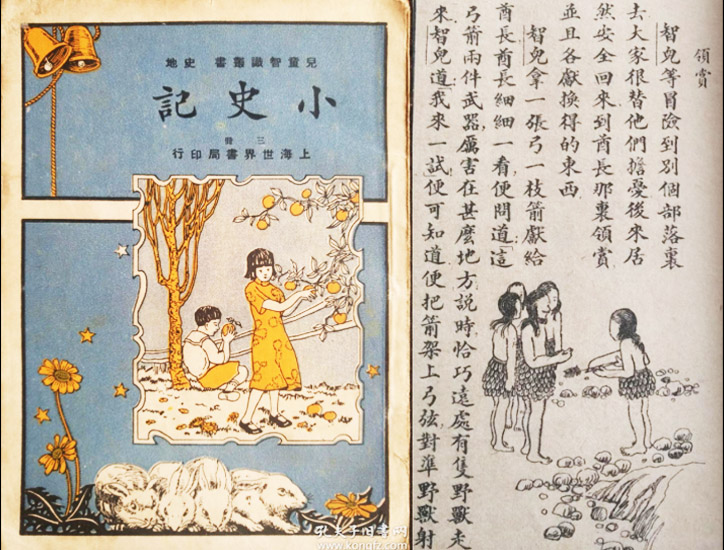 兒童智識叢書 史地
小史記
上海世界書局印行
領賞
智兒等冒險到別個部落裏
去大家很替他們擔憂後來居
然安全回來到酋長那裏領賞
並且各獻換得的東西
智兒拿一張弓一枝箭獻給
酋長酋長細細一看便問道「這
弓箭兩件武器,厲害在甚麼地方說時恰巧遠處有隻野獸走
來智兒道「我來一試便可知道便把箭架上弓弦,對準野獸射
孔夫子旧书网
www.kongfz.com